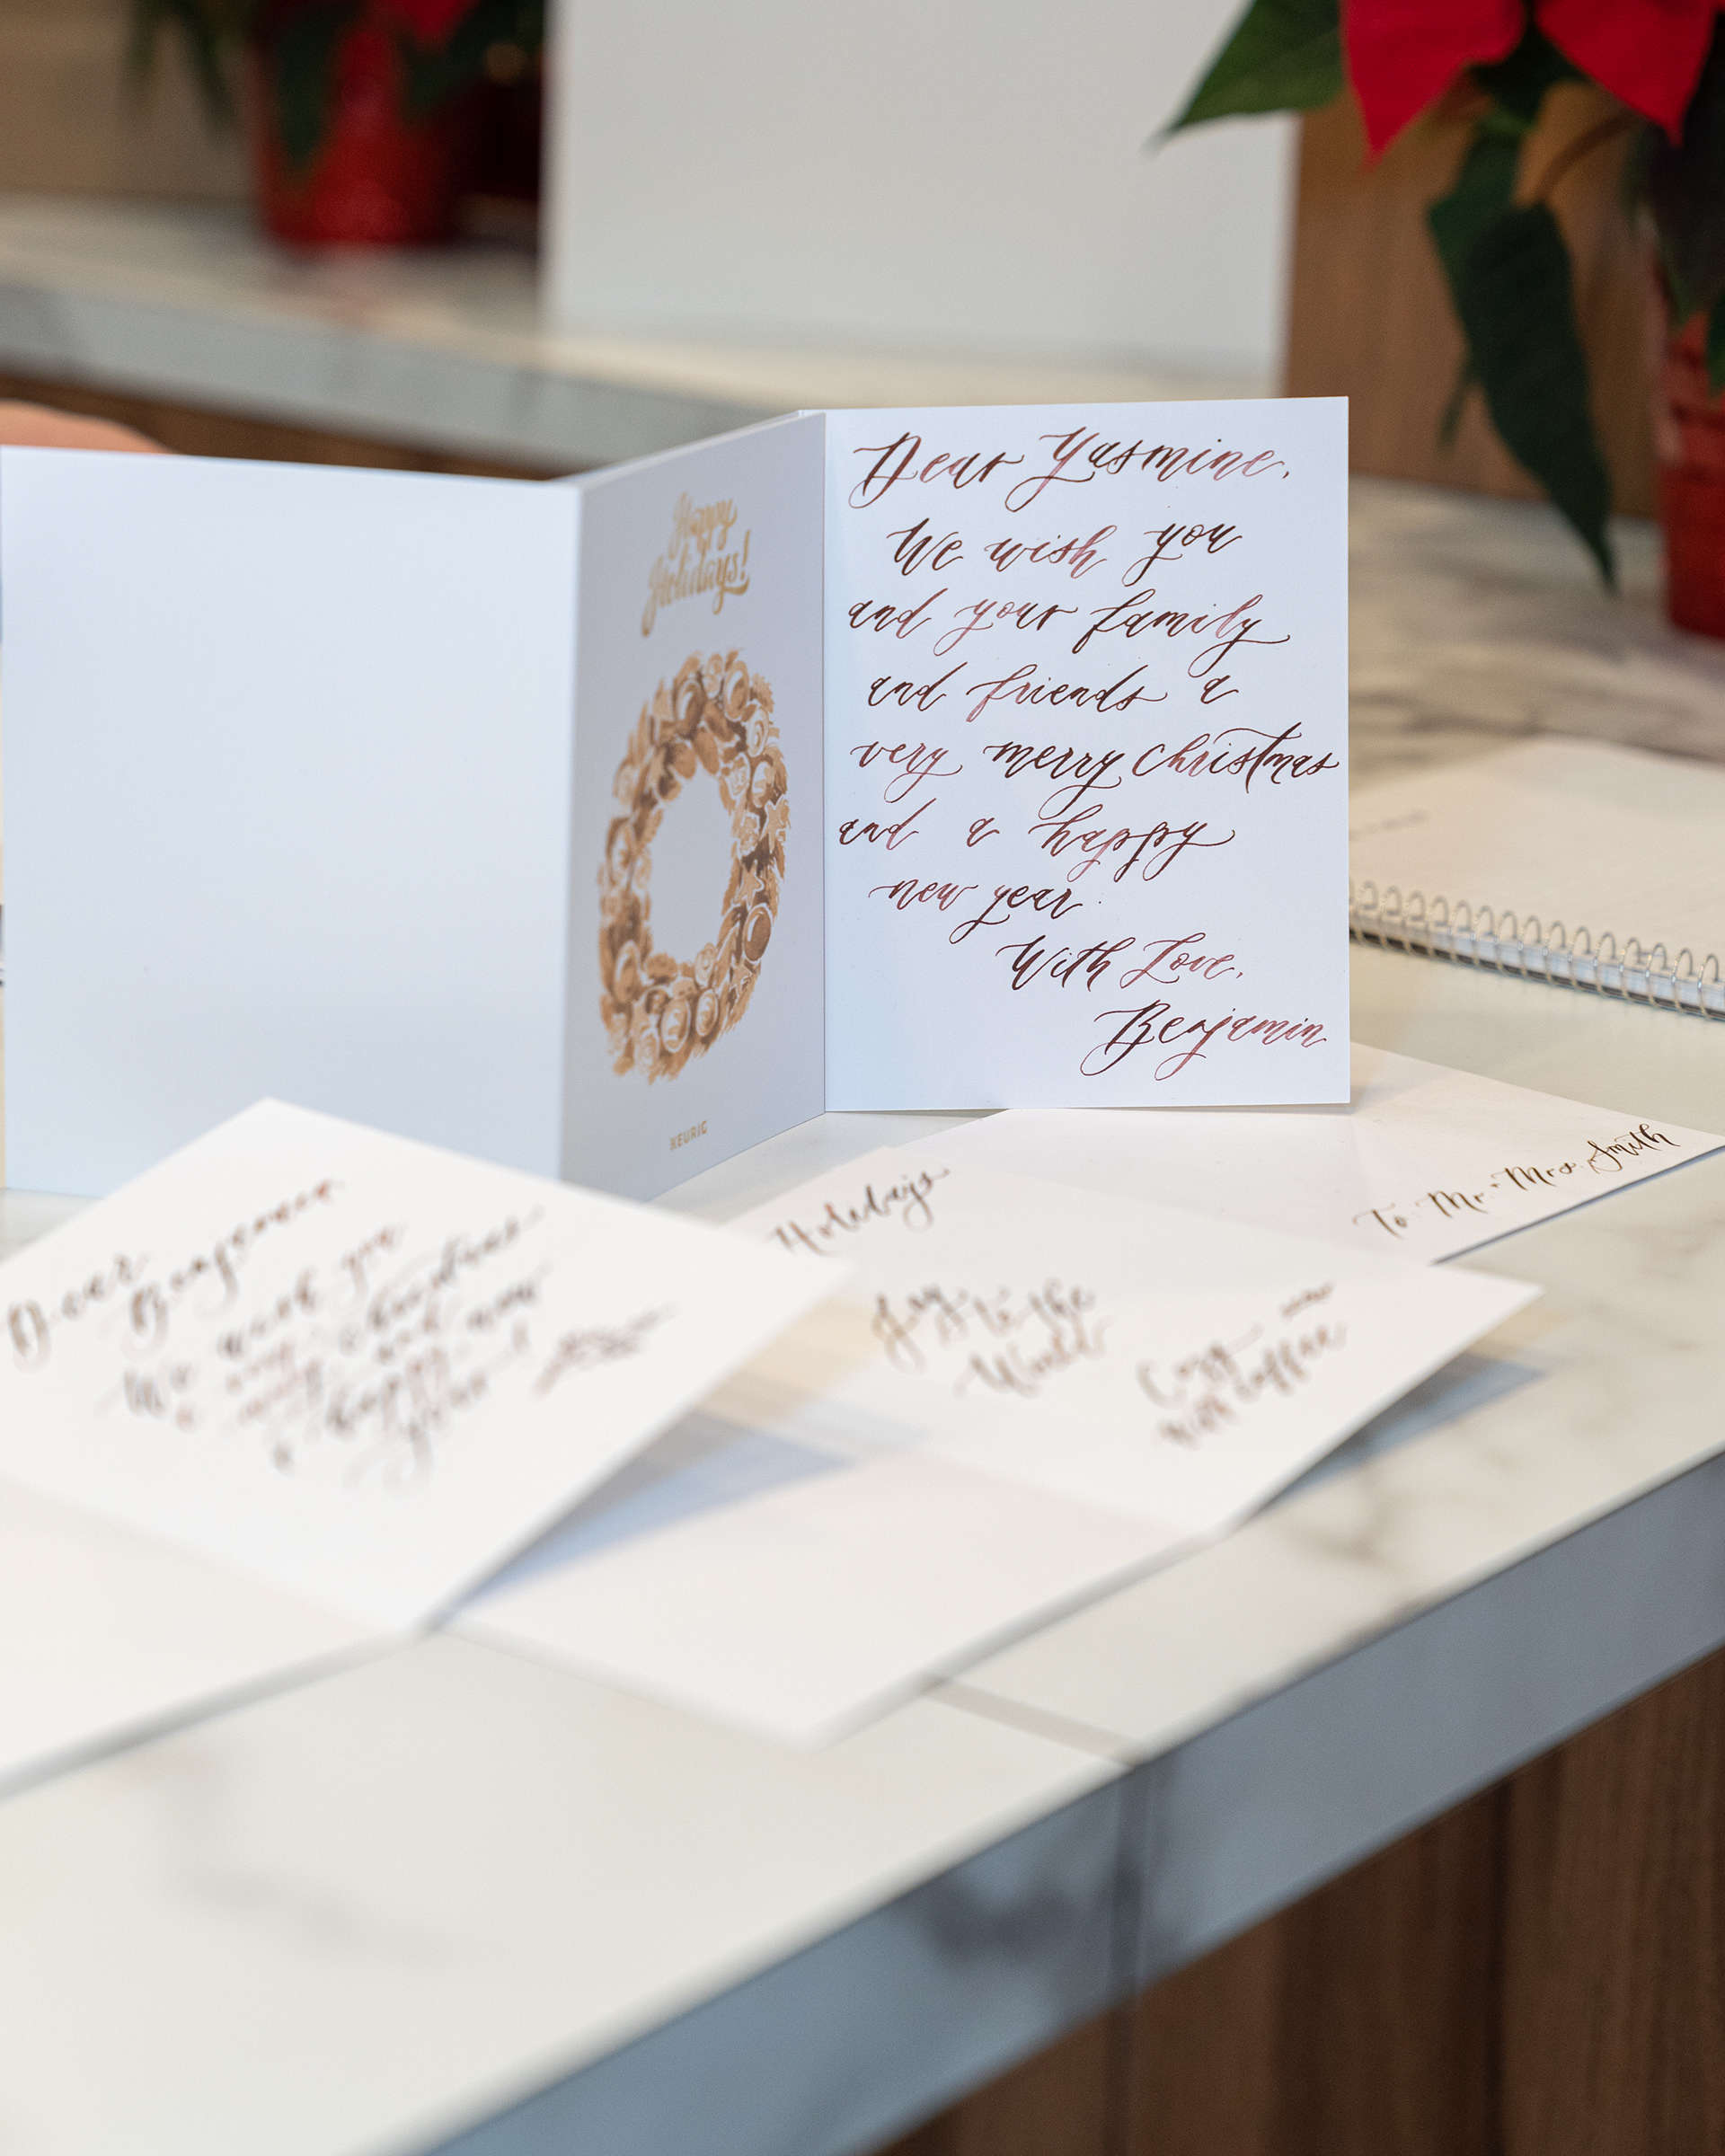 Happy
Holidays!
KEURIG
Dear Yasmine,
We wish you
and your family
and friends a
very merry Christmas
and a happy
new year.
With Love,
Benjamin
To: Mr. + Mrs. Smith
Holidays
Joy
to the
World
Cozy
with
Dear
We wish you
a
Christmas
and
new
a happy
year